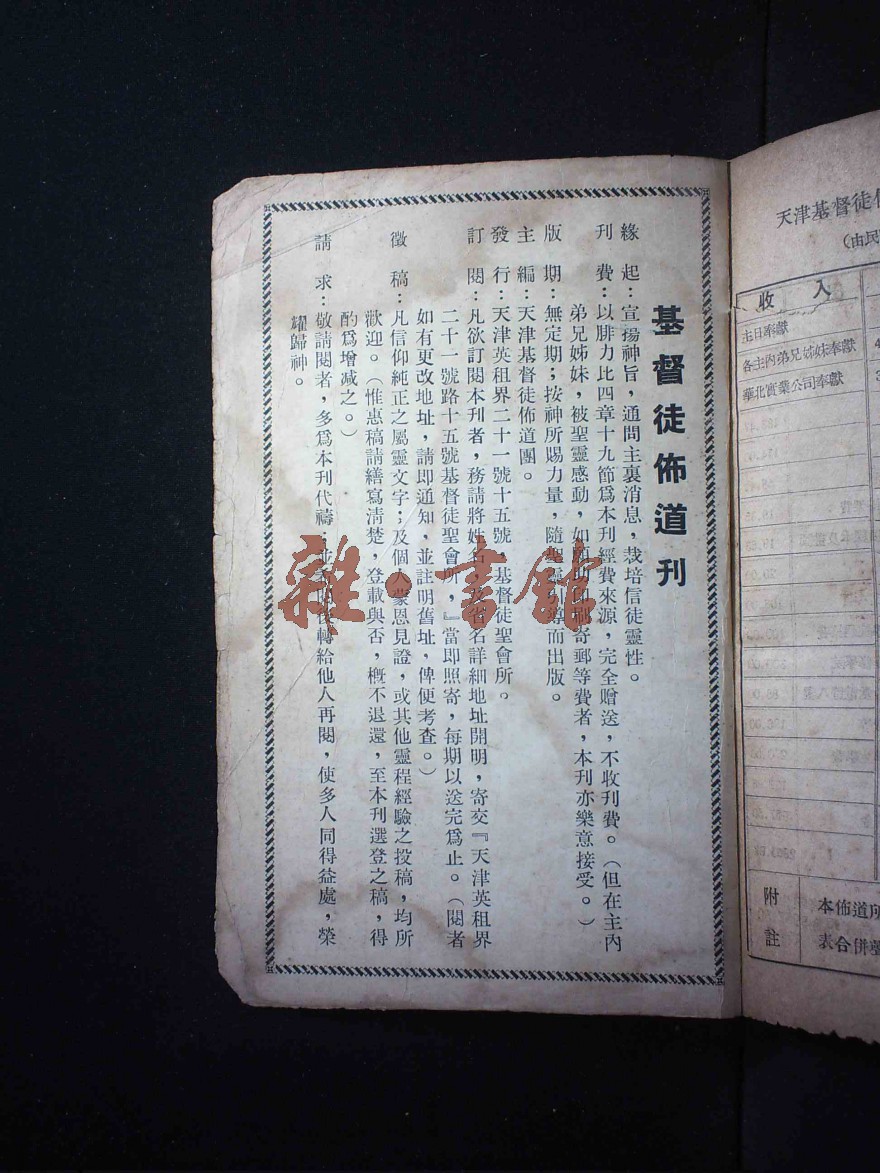 基督徒佈道刊
緣起：宣揚神旨，通問主裏消息，栽培信徒靈性。
刊費：以腓力比四章十九節爲本刊經費來源，完全贈送，不收刊費。（但在主內
弟兄姊妹，被聖靈感動，如願助印刷寄郵等費者，本刊亦樂意接受。）
版期：無定期；按神所賜力量，隨聖靈引導而出版。
主編：天津基督徒佈道團。
發行：天津英租界二十一號十五號 基督徒聖會所。
訂閱：凡欲訂閱本刊者，務請將姓名及省名詳細地址開明，寄交『天津英租界
二十一號路十五號基督徒聖會所，』當即照寄，每期以送完爲止。（閱者
如有更改地址，請即通知，並註明舊址，俾便考查。）
徵稿：凡信仰純正之屬靈文字；及個人蒙恩見證，或其他靈程經驗之投稿，均所
歡迎。（惟惠稿請繕寫清楚，登載與否，槪不退還，至本刊選登之稿，得
酌爲增減之。）
請求：敬請閱者，多爲本刊代禱，並 轉給他人再閱，使多人同得益處，榮
耀歸神。
雜·書館
天津基督徒
（由民
收入
主日奉獻
各主內弟兄姊妹奉獻
華北實業公司奉獻
附註
本佈道所
表合併